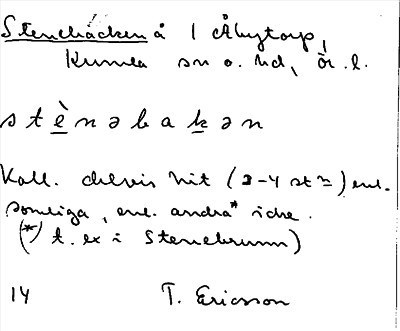 Stenebäcken å 1 Åbytorp,
Kumla sn o. hd, Ör. l.
stènəbakən
Kall. delvis hit (3-4 st =) enl.
somliga, enl. andra* icke.
(*) t. ex i Stenebrunn)
14 T. Ericson